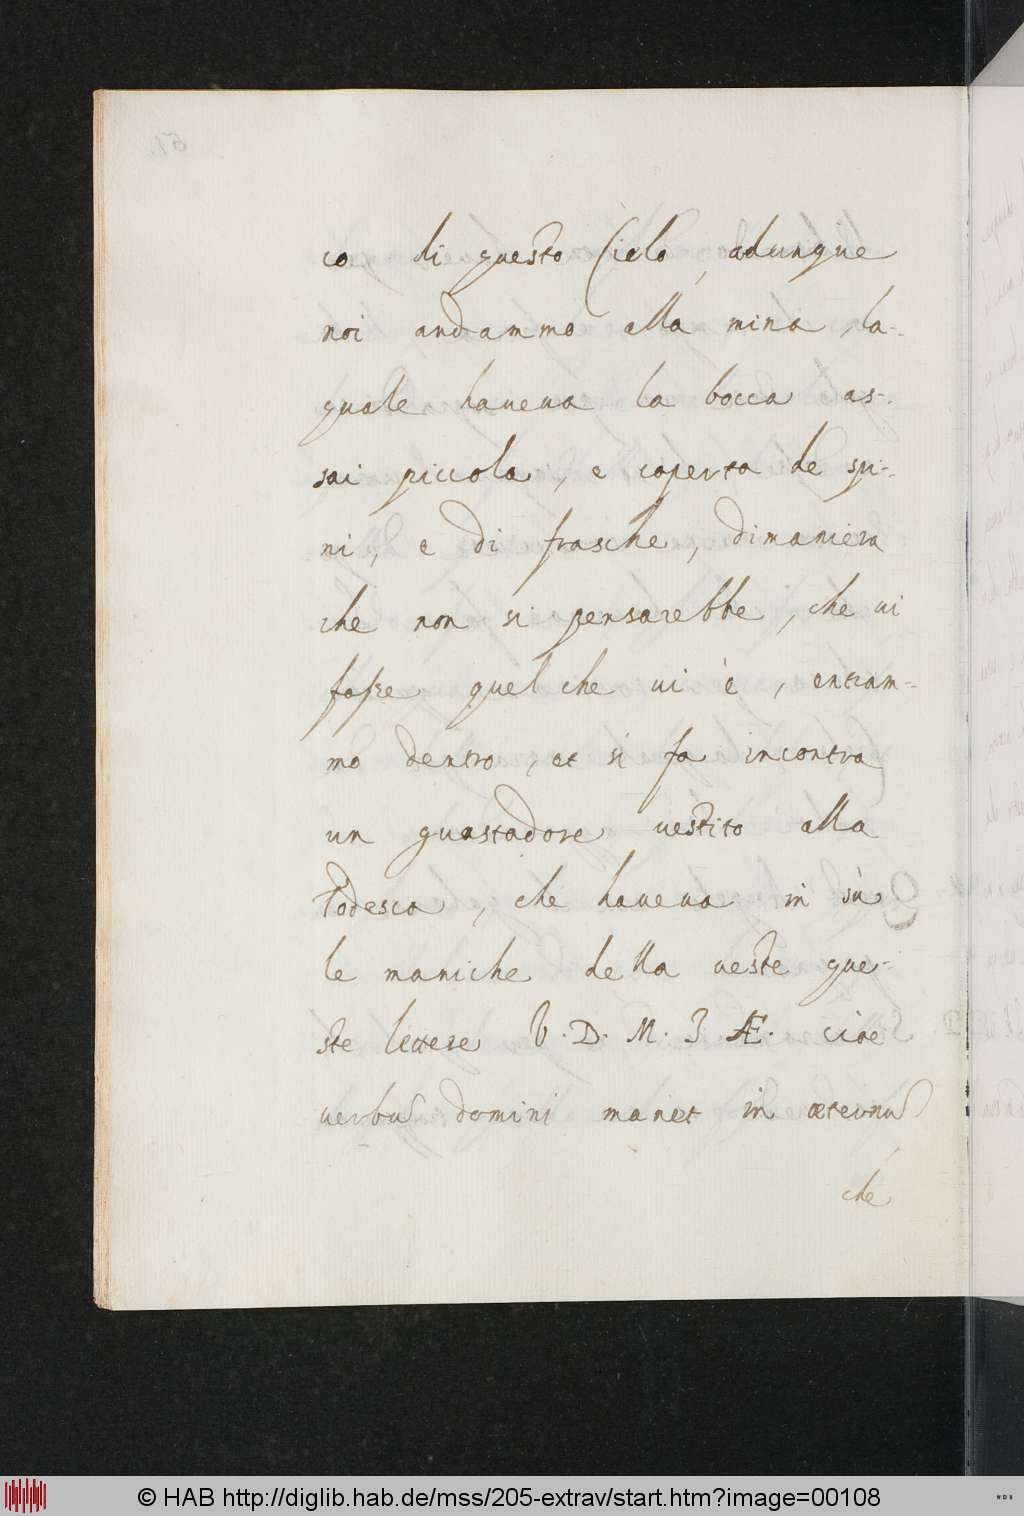 co di questo Cielo, adunque
noi andammo alla mina, la-
quale haueua la bocca as-
sai piccola, e coperta de spi-
ni, e di frasche, dimaniera
che non si pensarebbe, che ui
fosse quel che ui è, entram-
mo dentro, et si fa incontra
un guastadore uestito alla
Todesca, che haueua in sù
le maniche della ueste que-
ste lettere V. D. M. I Æ. cioe
uerbū domini manet in æternū
che
© HAB http://diglib.hab.de/mss/205-extrav/start.htm?image=00108